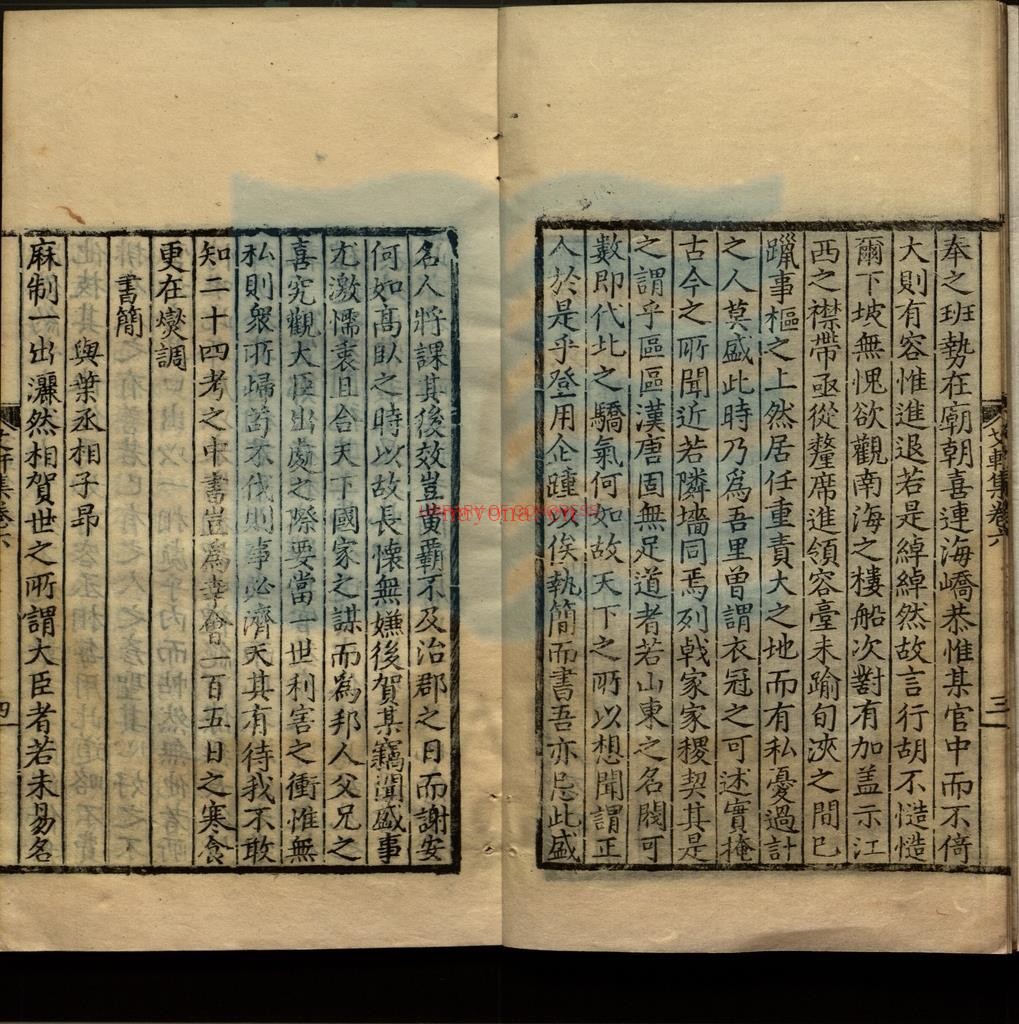 奉之班勢在廟朝喜連海嶠恭惟某官中而不倚
大則有容惟進退若是綽綽然故言行胡不慥慥
爾下坡無愧欲觀南海之樓船次對有加盖示江
西之襟帶亟從釐席進領容臺未踰旬浹之間已
躐事樞之上然居任重責大之地而有私憂過計
之人莫盛此時乃為吾里曾謂衣冠之可述實掩
古今之所聞近若隣墻同焉列戟家家稷契其是
之謂乎區區漢唐固無足道者若山東之名閥可
數即代北之驕氣何如故天下之所以想聞謂正
人於是乎登用企踵以俟執簡而書吾亦忌此盛
艾軒集卷六
三
名人將課其後效豈黃霸不及治郡之日而謝安
何如高臥之時以故長懷無嫌後賀某竊聞盛事
尤激懦衷且合天下國家之謀而為邦人父兄之
喜究觀大臣出處之際要當一世利害之衝惟無
私則衆所歸苟不伐則事必濟天其有待我不敢
知二十四考之中書豈為幸會一百五日之寒食
更在燮調
書簡
與葉丞相子昂
麻制一出灑然相賀世之所謂大臣者若未易名
四